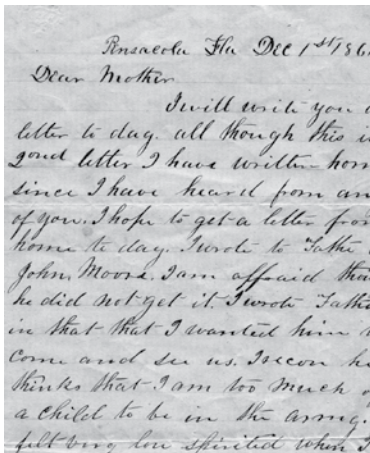 Pensacola Fla Dec 1st 186
Dear Mother
I will write you a
letter to day. all though this i
2ond letter I have written hom
since I have heard from an
of you. I hope to get a letter from
home to day. I wrote to Fathe
John, Moore. I am affraid tho
he did not get it. I wrote Fathe
in that that I wanted him
come and see us. I recon he
thinks that I am too much o
a child to be in the army.
felt very low spirited when I